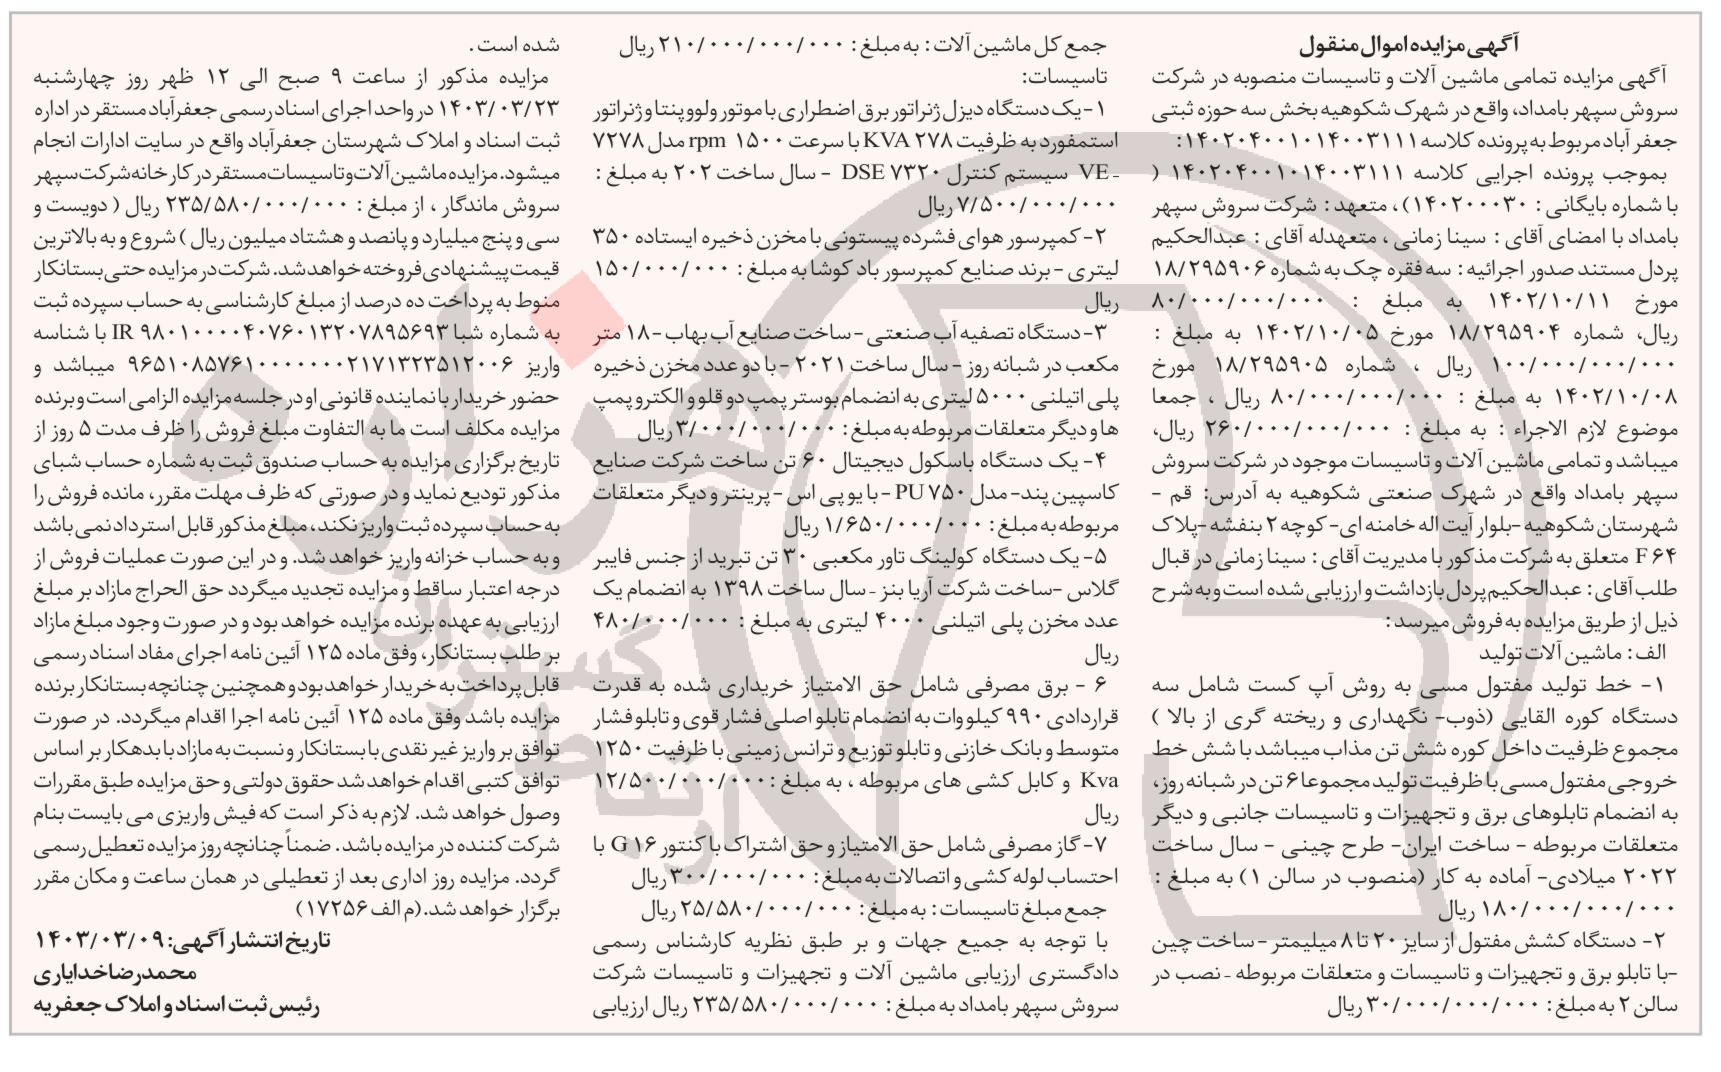 آگهی مزایده اموال منقول
آگهی مزایده تمامی ماشین آلات و تاسیسات منصوبه در شرکت
سروش سپهر بامداد، واقع در شهرک شکوهیه بخش سه حوزه ثبتی
جعفر آباد مربوط به پرونده کلاسه ۱۴۰۲۰۴۰۰۱۰۱۴۰۰۳۱۱۱:
بموجب پرونده اجرایی کلاسه ۱۴۰۲۰۴۰۰۱۰۱۴۰۰۳۱۱۱ (
با شماره بایگانی : ۱۴۰۲۰۰۰۳۰)، متعهد : شرکت سروش سپهر
بامداد با امضای آقای : سینا زمانی ، متعهدله آقای : عبدالحکیم
پردل مستند صدور اجرائیه : سه فقره چک به شماره ۱۸/۲۹۵۹۰۶
مورخ ۱۴۰۲/۱۰/۱۱ به مبلغ : ۸۰/۰۰۰/۰۰۰/۰۰۰
ریال، شماره ۱۸/۲۹۵۹۰۴ مورخ ۱۴۰۲/۱۰/۰۵ به مبلغ :
۱۰۰/۰۰۰/۰۰۰/۰۰۰ ریال ، شماره ۱۸/۲۹۵۹۰۵ مورخ
۱۴۰۲/۱۰/۰۸ به مبلغ : ۸۰/۰۰۰/۰۰۰/۰۰۰ ریال ، جمعا
موضوع لازم الاجراء : به مبلغ : ۲۶۰/۰۰۰/۰۰۰/۰۰۰ ریال،
میباشد و تمامی ماشین آلات و تاسیسات موجود در شرکت سروش
سپهر بامداد واقع در شهرک صنعتی شکوهیه به آدرس: قم -
شهرستان شکوهیه -بلوار آیت اله خامنه ای- کوچه ۲ بنفشه -پلاک
F۶۴ متعلق به شرکت مذکور با مدیریت آقای : سینا زمانی در قبال
طلب آقای : عبدالحکیم پردل بازداشت و ارزیابی شده است و به شرح
ذیل از طریق مزایده به فروش میرسد :
الف : ماشین آلات تولید
۱- خط تولید مفتول مسی به روش آپ کست شامل سه
دستگاه کوره القایی (ذوب- نگهداری و ریخته گری از بالا )
مجموع ظرفیت داخل کوره شش تن مذاب میباشد با شش خط
خروجی مفتول مسی با ظرفیت تولید مجموعا ۶ تن در شبانه روز،
به انضمام تابلوهای برق و تجهیزات و تاسیسات جانبی و دیگر
متعلقات مربوطه - ساخت ایران- طرح چینی - سال ساخت
۲۰۲۲ میلادی- آماده به کار (منصوب در سالن ۱) به مبلغ :
۱۸۰/۰۰۰/۰۰۰/۰۰۰ ریال
۲- دستگاه کشش مفتول از سایز ۲۰ تا ۸ میلیمتر -ساخت چین
-با تابلو برق و تجهیزات و تاسیسات و متعلقات مربوطه - نصب در
سالن ۲ به مبلغ : ۳۰/۰۰۰/۰۰۰/۰۰۰ ریال
جمع کل ماشین آلات : به مبلغ : ۲۱۰/۰۰۰/۰۰۰/۰۰۰ ریال
تاسیسات:
۱- یک دستگاه دیزل ژنراتور برق اضطراری با موتور ولوو پنتا و ژنراتور
استمفورد به ظرفیت ۲۷۸ KVA با سرعت ۱۵۰۰ rpm مدل ۷۲۷۸
-VE سیستم کنترل ۷۳۲۰ DSE - سال ساخت ۲۰۲ به مبلغ :
۷/۵۰۰/۰۰۰/۰۰۰ ریال
۲- کمپرسور هوای فشرده پیستونی با مخزن ذخیره ایستاده ۳۵۰
لیتری - برند صنایع کمپرسور باد کوشا به مبلغ : ۱۵۰/۰۰۰/۰۰۰
ریال
۳- دستگاه تصفیه آب صنعتی - ساخت صنایع آب بهاب - ۱۸ متر
مکعب در شبانه روز - سال ساخت ۲۰۲۱ - با دو عدد مخزن ذخیره
پلی اتیلنی ۵۰۰۰ لیتری به انضمام بوستر پمپ دو قلو و الکترو پمپ
ها و دیگر متعلقات مربوطه به مبلغ : ۳/۰۰۰/۰۰۰/۰۰۰ ریال
۴- یک دستگاه باسکول دیجیتال ۶۰ تن ساخت شرکت صنایع
کاسپین پند- مدل PU ۷۵۰ - با یو پی اس - پرینتر و دیگر متعلقات
مربوطه به مبلغ : ۱/۶۵۰/۰۰۰/۰۰۰ ریال
۵- یک دستگاه کولینگ تاور مکعبی ۳۰ تن تبرید از جنس فایبر
گلاس -ساخت شرکت آریا بنز - سال ساخت ۱۳۹۸ به انضمام یک
عدد مخزن پلی اتیلنی ۴۰۰۰ لیتری به مبلغ : ۴۸۰/۰۰۰/۰۰۰
ریال
۶ - برق مصرفی شامل حق الامتیاز خریداری شده به قدرت
قراردادی ۹۹۰ کیلووات به انضمام تابلو اصلی فشار قوی و تابلو فشار
متوسط و بانک خازنی و تابلو توزیع و ترانس زمینی با ظرفیت ۱۲۵۰
Kva و کابل کشی های مربوطه ، به مبلغ : ۱۲/۵۰۰/۰۰۰/۰۰۰
ریال
۷- گاز مصرفی شامل حق الامتیاز و حق اشتراک با کنتور G ۱۶ با
احتساب لوله کشی و اتصالات به مبلغ : ۳۰۰/۰۰۰/۰۰۰ ریال
جمع مبلغ تاسیسات : به مبلغ : ۲۵/۵۸۰/۰۰۰/۰۰۰ ریال
با توجه به جمیع جهات و بر طبق نظریه کارشناس رسمی
دادگستری ارزیابی ماشین آلات و تجهیزات و تاسیسات شرکت
سروش سپهر بامداد به مبلغ : ۲۳۵/۵۸۰/۰۰۰/۰۰۰ ریال ارزیابی
شده است .
مزایده مذکور از ساعت ۹ صبح الی ۱۲ ظهر روز چهارشنبه
۱۴۰۳/۰۳/۲۳ در واحد اجرای اسناد رسمی جعفرآباد مستقر در اداره
ثبت اسناد و املاک شهرستان جعفرآباد واقع در سایت ادارات انجام
میشود. مزایده ماشین آلات و تاسیسات مستقر در کارخانه شرکت سپهر
سروش ماندگار ، از مبلغ : ۲۳۵/۵۸۰/۰۰۰/۰۰۰ ریال ( دویست و
سی و پنج میلیارد و پانصد و هشتاد میلیون ریال ) شروع و به بالاترین
قیمت پیشنهادی فروخته خواهد شد. شرکت در مزایده حتی بستانکار
منوط به پرداخت ده درصد از مبلغ کارشناسی به حساب سپرده ثبت
به شماره شبا IR ۹۸۰۱۰۰۰۰۴۰۷۶۰۱۳۲۰۷۸۹۵۶۹۳ با شناسه
واریز ۹۶۵۱۰۸۵۷۶۱۰۰۰۰۰۰۰۲۱۷۱۳۲۳۵۱۲۰۰۶ میباشد و
حضور خریدار یا نماینده قانونی او در جلسه مزایده الزامی است و برنده
مزایده مکلف است ما به التفاوت مبلغ فروش را ظرف مدت ۵ روز از
تاریخ برگزاری مزایده به حساب صندوق ثبت به شماره حساب شبای
مذکور تودیع نماید و در صورتی که ظرف مهلت مقرر، مانده فروش را
به حساب سپرده ثبت واریز نکند، مبلغ مذکور قابل استرداد نمی باشد
و به حساب خزانه واریز خواهد شد. و در این صورت عملیات فروش از
درجه اعتبار ساقط و مزایده تجدید میگردد حق الحراج مازاد بر مبلغ
ارزیابی به عهده برنده مزایده خواهد بود و در صورت وجود مبلغ مازاد
بر طلب بستانکار، وفق ماده ۱۲۵ آئین نامه اجرای مفاد اسناد رسمی
قابل پرداخت به خریدار خواهد بود و همچنین چنانچه بستانکار برنده
مزایده باشد وفق ماده ۱۲۵ آئین نامه اجرا اقدام میگردد. در صورت
توافق بر واریز غیر نقدی با بستانکار و نسبت به مازاد با بدهکار بر اساس
توافق کتبی اقدام خواهد شد حقوق دولتی و حق مزایده طبق مقررات
وصول خواهد شد. لازم به ذکر است که فیش واریزی می بایست بنام
شرکت کننده در مزایده باشد. ضمناً چنانچه روز مزایده تعطیل رسمی
گردد. مزایده روز اداری بعد از تعطیلی در همان ساعت و مکان مقرر
برگزار خواهد شد.(م الف ۱۷۲۵۶)
تاریخ انتشار آگهی: ۱۴۰۳/۰۳/۰۹
محمدرضا خدایاری
رئیس ثبت اسناد و املاک جعفریه
هزاره
گسترش
ارتباط